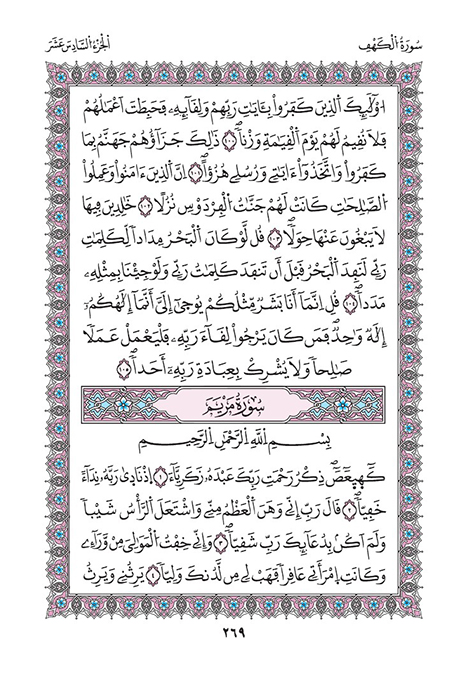 سُورَةُ الْكَهْفِ
الجُزْءُ السَّادِسَ عَشَرَ
أُوْلَٰٓئِكَ اَ۬لذِينَ كَفَرُواْ بِـَٔايَٰتِ رَبِّهِمْ وَلِقَآئِهِۦ فَحَبِطَتَ اَعْمَٰلُهُمْ
فَلَا نُقِيمُ لَهُمْ يَوْمَ اَ۬لْقِيَٰمَةِ وَزْناٗ ١٠٠ ذَٰلِكَ جَزَآؤُهُمْ جَهَنَّمُ بِمَا
كَفَرُواْ وَاتَّخَذُوٓاْ ءَايَٰتِے وَرُسُلِے هُزُؤاً ١٠١ اِنَّ اَ۬لذِينَ ءَامَنُواْ وَعَمِلُواْ
اُ۬لصَّٰلِحَٰتِ كَانَتْ لَهُمْ جَنَّٰتُ اُ۬لْفِرْدَوْسِ نُزُلاً ١٠٢ خَٰلِدِينَ فِيهَا
لَا يَبْغُونَ عَنْهَا حِوَلاٗ ١٠٣ قُل لَّوْ كَانَ اَ۬لْبَحْرُ مِدَاداٗ لِّكَلِمَٰتِ
رَبِّے لَنَفِدَ اَ۬لْبَحْرُ قَبْلَ أَن تَنفَدَ كَلِمَٰتُ رَبِّے وَلَوْ جِئْنَا بِمِثْلِهِۦ
مَدَداٗ ١٠٤ قُلِ اِنَّمَآ أَنَا بَشَرٞ مِّثْلُكُمْ يُوح۪يٰٓ إِلَيَّ أَنَّمَآ إِلَٰهُكُمُۥٓ
إِلَٰهٞ وَٰحِدٞ فَمَن كَانَ يَرْجُواْ لِقَآءَ رَبِّهِۦ فَلْيَعْمَلْ عَمَلاٗ
صَٰلِحاٗ وَلَا يُشْرِكْ بِعِبَادَةِ رَبِّهِۦٓ أَحَداٗ ١٠٥
سُورَةُ مَرْيَمَ
بِسْمِ اِ۬للَّهِ اِ۬لرَّحْمَٰنِ اِ۬لرَّحِيمِ
كٓهيعٓصٓ ذِكْرُ رَحْمَتِ رَبِّكَ عَبْدَهُۥ زَكَرِيَّآءَ ١ اِذْ نَاد۪يٰ رَبَّهُۥ نِدَآءً
خَفِيّاٗ ٢ قَالَ رَبِّ إِنِّے وَهَنَ اَ۬لْعَظْمُ مِنِّے وَاشْتَعَلَ اَ۬لرَّأْسُ شَيْباٗ
وَلَمَ اَكُنۢ بِدُعَآئِكَ رَبِّ شَقِيّاٗ ٣ وَإِنِّے خِفْتُ اُ۬لْمَوَٰلِيَ مِنْ وَّرَآءِے
وَكَانَتِ اِ۪مْرَأَتِے عَاقِراٗ فَهَبْ لِے مِن لَّدُنكَ وَلِيّاٗ ٤ يَرِثُنِے وَيَرِثُ
٢٦٩